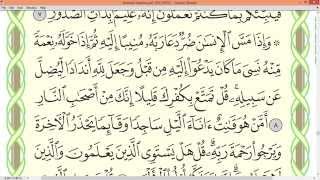 فَيُنَبِّئُكُم بِمَا كُنتُمْ تَعْمَلُونَ إِنَّهُۥ عَلِيمٌۢ بِذَاتِ ٱلصُّدُورِ ٧
۞ وَإِذَا مَسَّ ٱلْإِنسَـٰنَ ضُرٌّ دَعَا رَبَّهُۥ مُنِيبًا إِلَيْهِ ثُمَّ إِذَا خَوَّلَهُۥ نِعْمَةً
مِّنْهُ نَسِىَ مَا كَانَ يَدْعُوٓا۟ إِلَيْهِ مِن قَبْلُ وَجَعَلَ لِلَّهِ أَندَادًا لِّيُضِلَّ
عَن سَبِيلِهِۦ ۚ قُلْ تَمَتَّعْ بِكُفْرِكَ قَلِيلًا ۖ إِنَّكَ مِنْ أَصْحَـٰبِ ٱلنَّارِ
٨ أَمَّنْ هُوَ قَـٰنِتٌ ءَانَآءَ ٱلَّيْلِ سَاجِدًا وَقَآئِمًا يَحْذَرُ ٱلْـَٔاخِرَةَ
وَيَرْجُوا۟ رَحْمَةَ رَبِّهِۦ ۗ قُلْ هَلْ يَسْتَوِى ٱلَّذِينَ يَعْلَمُونَ وَٱلَّذِينَ